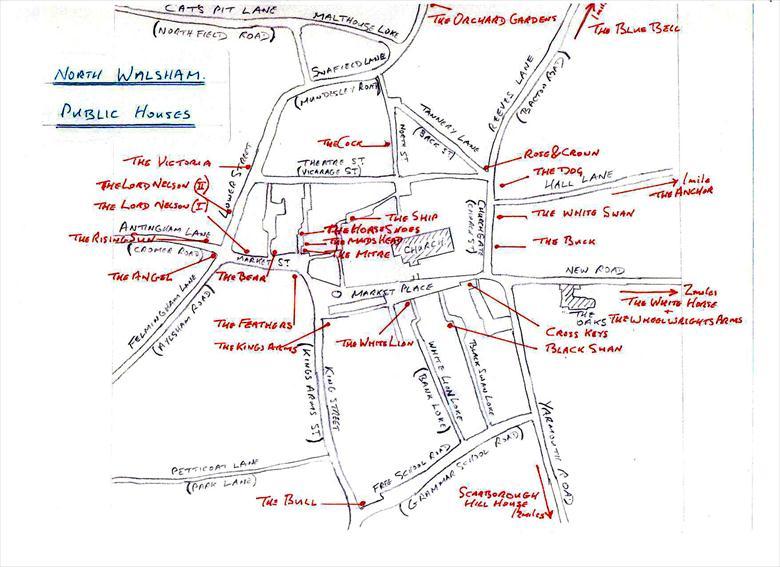 CATS PIT LANE
(NORTHFIELD ROAD)
MALTHOUSE LOKE
THE ORCHARD GARDENS
1 mile
THE BLUE BELL
NORTH WALSHAM.
PUBLIC HOUSES
SWAFIELD LANE
(MUNDESLEY ROAD)
REEVES LANE
(BACTON ROAD)
TANNERY LANE
(BACK ST)
NORTH ST
THE COCK
THE VICTORIA
LOWER STREET
THE LORD NELSON (II)
THE LORD NELSON (I)
THEATRE ST
(VICARAGE ST)
ROSE & CROWN
THE DOG
HALL LANE
1 mile
THE ANCHOR
THE SHIP
THE HORSE SHOES
THE MAIDS HEAD
THE MITRE
CHURCH
CHURCHGATE
(CHURCH ST)
THE WHITE SWAN
THE BUCK
ANTINGHAM LANE
THE RISING SUN
(CROMER ROAD)
MARKET ST
THE ANGEL
THE BEAR
NEW ROAD
MARKET PLACE
2 miles
THE WHITE HORSE
+
THE WHEELWRIGHTS ARMS
THE OAKS
FELMINGHAM LANE
(AYLSHAM ROAD)
THE FEATHERS
THE KINGS ARMS
THE WHITE LION
CROSS KEYS
BLACK SWAN
KING STREET
(KINGS ARMS ST)
WHITE LION LOKE
(BANK LOKE)
BLACK SWAN LOKE
YARMOUTH ROAD
PETTICOAT LANE
(PARK LANE)
FREE SCHOOL ROAD
(GRAMMAR SCHOOL ROAD)
THE BULL
SCARBOROUGH
HILL HOUSE